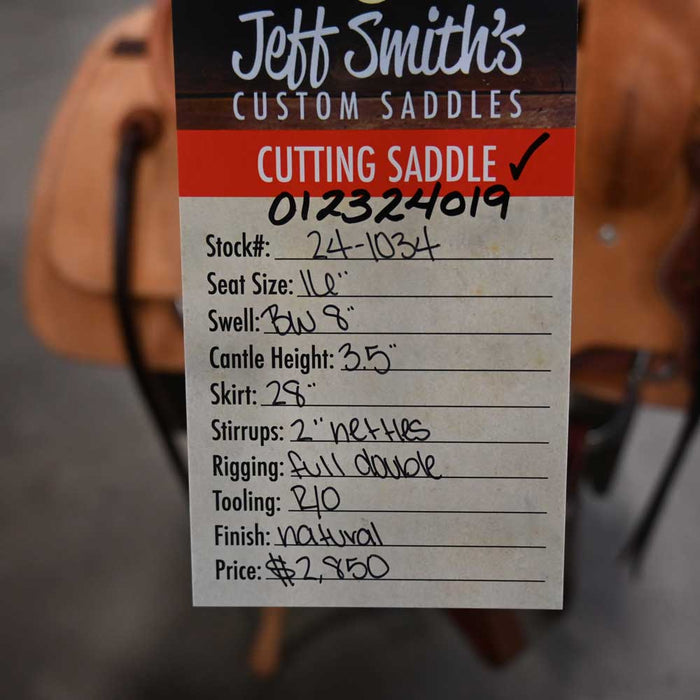 Jeff Smith's
CUSTOM SADDLES
CUTTING SADDLE ✓
012324019
Stock#: 24-1034
Seat Size: 16"
Swell: BW 8"
Cantle Height: 3.5"
Skirt: 28"
Stirrups: 2" netties
Rigging: full double
Tooling: R/O
Finish: natural
Price: $2,850